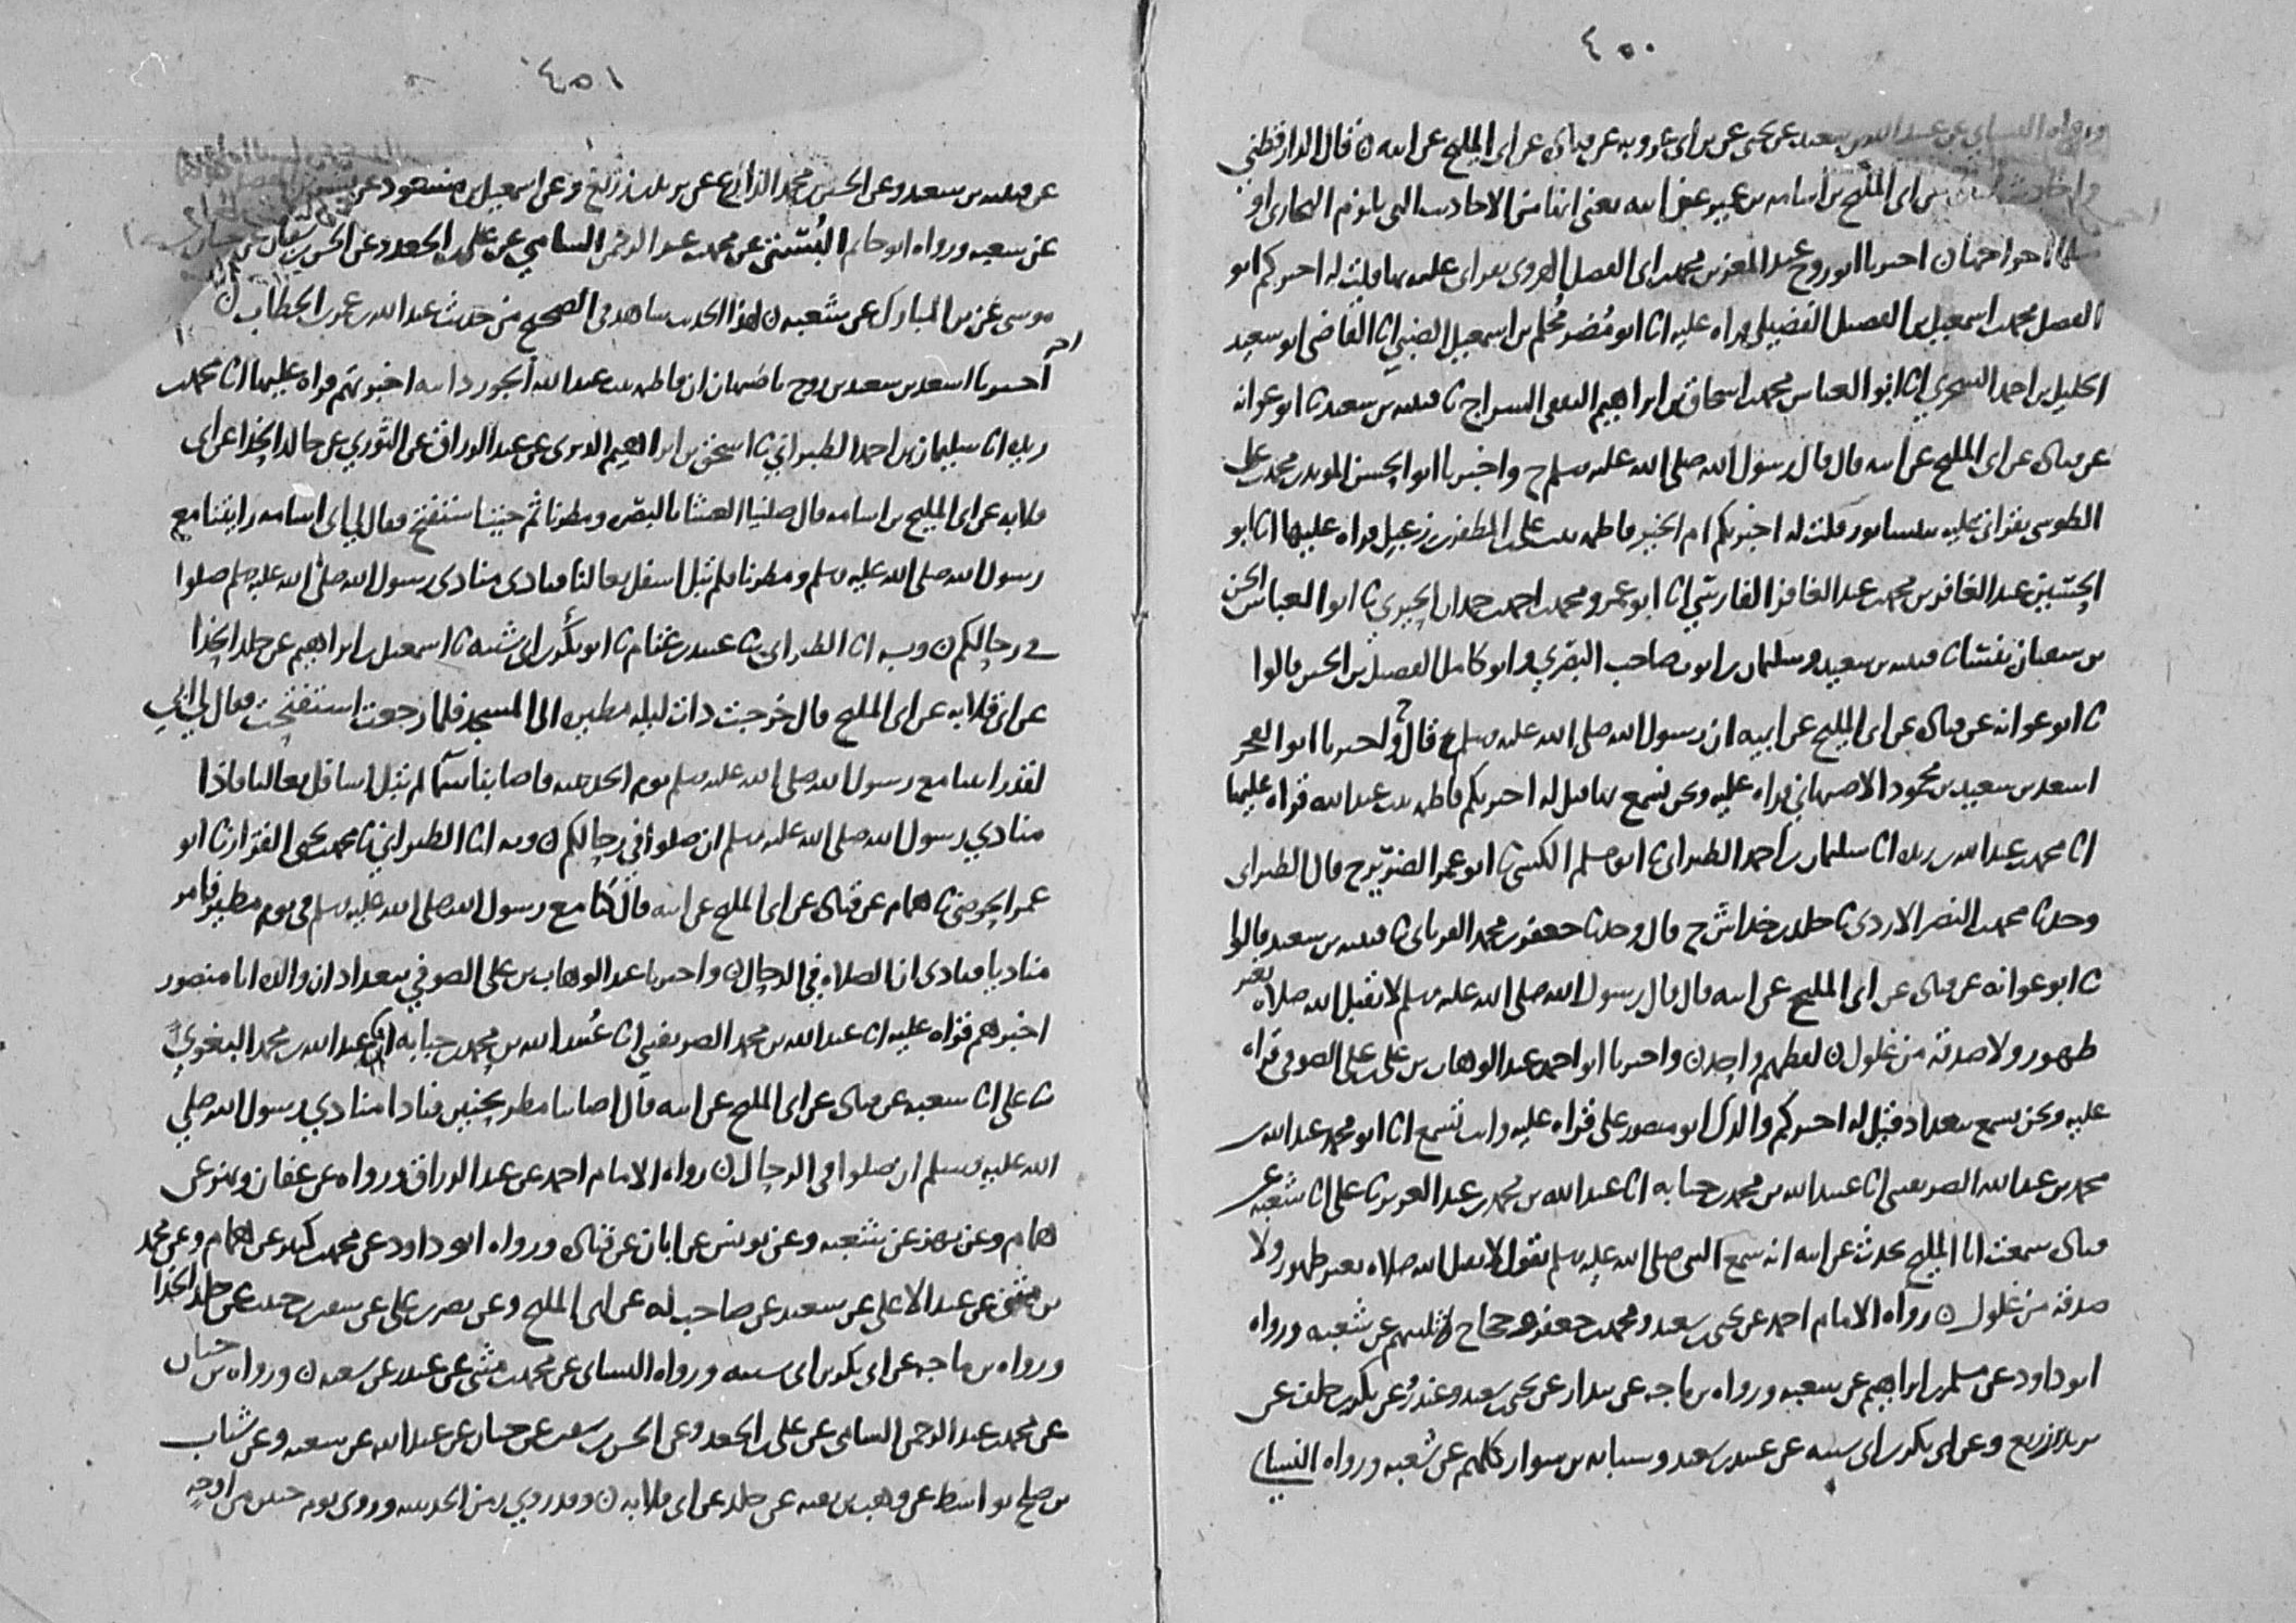 ٤٥٠
ورواه النسائي عن عبد الله بن سعيد عن يحيى عن بن أبي عروبه عن قتادة عن أبي المليح عن ابيه ن قال الدارقطني
أبي المليح بن أسامه بن عمير عن ابيه يعني ايضا من الاحاديث التي يلزم البخاري او
اخراجهان اخبرنا ابو روح عبد المعز بن محمد بن ابي الفضل الهروي بقراتي عليه بها قلت له اخبركم ابو
الفضل محمد بن اسمعيل بن الفضيل الفضيلي قراه عليه انا ابو مضر محلم بن اسمعيل الضبي انا القاضي ابو سعيد
الخليل بن احمد السجزي انا ابو العباس محمد بن اسحاق بن ابراهيم الثقفي السراج نا قتيبه بن سعيد نا ابو عوانه
عن قتادة عن ابي المليح عن ابيه قال قال رسول الله صلى الله عليه وسلم ح واخبرنا ابو الحسن المويد بن محمد بن علي
الطوسي بقراتي عليه بنيسابور قلت له اخبرتكم ام الخير فاطمه بنت علي بن المظفر بن زعبل قراه عليها انا ابو
الحسين عبد الغافر بن محمد بن عبد الغافر الفارسي انا ابو عمرو محمد بن احمد بن حمدان الحيري نا ابو العباس الحسن
بن سفيان بفسا نا قتيبه بن سعيد وسليمان بن ايوب صاحب البصري وابو كامل الفضيل بن الحسين قالوا
نا ابو عوانه عن قتادة عن ابي المليح عن ابيه ان رسول الله صلى الله عليه وسلم ح قال واخبرنا ابو الفخر
اسعد بن سعيد بن محمود الاصبهاني قراه عليه ونحن نسمع بها قيل له اخبرتكم فاطمه بنت عبد الله قراه عليها
انا محمد بن عبد الله بن ريذه انا سليمان بن احمد الطبراني نا ابو مسلم الكشي نا ابو عمر الضرير ح قال الطبراني
وحدثنا محمد بن النضر الازدي نا خلد بن خداش ح قال وحدثنا جعفر بن محمد الفريابي نا قتيبه بن سعيد قالوا
نا ابو عوانه عن قتادة عن ابي المليح عن ابيه قال قال رسول الله صلى الله عليه وسلم لا يقبل الله صلاه بغير
طهور ولا صدقه من غلول ن لفظهم واحد ن واخبرنا ابو احمد عبد الوهاب بن علي بن علي الصوفي قراه
عليه ونحن نسمع ببغداد قيل له اخبركم والدك ابو منصور علي قراه عليه وانت تسمع انا ابو محمد عبد الله بن
محمد بن عبد الله الصريفيني انا عبيد الله بن محمد بن حبابه انا عبد الله بن محمد بن عبد العزيز نا علي انا شعبه عن
قتادة سمعت ابا المليح يحدث عن ابيه انه سمع النبي صلى الله عليه وسلم يقول لا يقبل الله صلاه بغير طهور ولا
صدقه من غلول ن رواه الامام احمد عن يحيى بن سعيد ومحمد بن جعفر وحجاج ثلثتهم عن شعبه ورواه
ابو داود عن مسلم بن ابراهيم عن شعبه ورواه بن ماجه عن بندار عن يحيى بن سعيد وغندر وعن بكر بن خلف عن
يزيد بن زريع وعن ابي بكر بن ابي شيبه عن عبيد بن سعيد وشبابه بن سوار كلهم عن شعبه ورواه النسائي
٤٥١
عن قتيبه بن سعيد وعن الحسين بن محمد الذارع عن يزيد بن زريع وعن اسمعيل بن مسعود عن بشر بن المفضل
عن شعبه ورواه ابو حاتم البستي عن محمد بن عبد الرحمن السامي عن علي بن الجعد وعن الحسن بن سفيان عن حبان بن
موسى عن بن المبارك عن شعبه ن لهذا الحديث شاهد في الصحيح من حديث عبد الله بن عمر بن الخطاب ن
اخر
اخبرنا اسعد بن سعيد بن روح باصبهان ان فاطمه بنت عبد الله الجوزدانيه اخبرتهم قراه عليها انا محمد بن
ريذه انا سليمان بن احمد الطبراني نا اسحق بن ابراهيم الدبري عن عبد الرزاق عن الثوري عن خالد الحذا عن ابي
قلابه عن ابي المليح بن اسامه قال صلينا العشا بالبصره ومطرنا ثم جيت استفتح فقال لي ابي اسامه رايتنا مع
رسول الله صلى الله عليه وسلم ومطرنا فلم تبل اسفل نعالنا فنادى منادي رسول الله صلى الله عليه وسلم صلوا
في رحالكم ن وبه انا الطبراني نا عبيد بن غنام نا ابو بكر بن ابي شيبه نا اسمعيل بن ابراهيم عن خلد الحذا
عن ابي قلابه عن ابي المليح قال خرجت ذات ليله مطيره الى المسجد فلما رجعت استفتحت فقال لي ابي
لقد راينا مع رسول الله صلى الله عليه وسلم يوم الحديبيه فاصابتنا سما لم تبل اسافل نعالنا فاذا
منادي رسول الله صلى الله عليه وسلم ان صلوا في رحالكم ن وبه انا الطبراني نا محمد بن يحيى القزاز نا ابو
عمر الحوضي نا همام عن قتادة عن ابي المليح عن ابيه قال كنا مع رسول الله صلى الله عليه وسلم في يوم مطير فامر
مناديا فنادى ان الصلاه في الرحال ن واخبرنا عبد الوهاب بن علي الصوفي ببغداد ان والده ابا منصور
اخبرهم قراه عليه انا عبد الله بن محمد الصريفيني انا عبيد الله بن محمد بن حبابه انا عبد الله بن محمد البغوي
نا علي انا شعبه عن قتادة عن ابي المليح عن ابيه قال اصابنا مطر بحنين فنادا منادي رسول الله صلى
الله عليه وسلم ان صلوا في الرحال ن رواه الامام احمد عن عبد الرزاق ورواه عن عفان وبهز عن
همام وعن بهز عن شعبه وعن يونس عن ابان عن قتادة ورواه ابو داود عن محمد بن كثير عن همام وعن محمد
بن مثنى عن عبد الاعلى عن سعيد عن صاحب له عن ابي المليح وعن نصر بن علي عن سفين بن حبيب عن خلد الحذا
ورواه بن ماجه عن ابي بكر بن ابي شيبه ورواه النسائي عن محمد بن مثنى عن غندر عن شعبه ن ورواه بن حبان
عن محمد بن عبد الرحمن السامي عن علي بن الجعد وعن الحسن بن سفين عن حبان عن عبد الله عن شعبه وعن شباب
بن صلح بواسط عن وهب بن بقيه عن خلد عن ابي قلابه ن وقد روي زمن الحديبيه وروي يوم حنين من اوجه